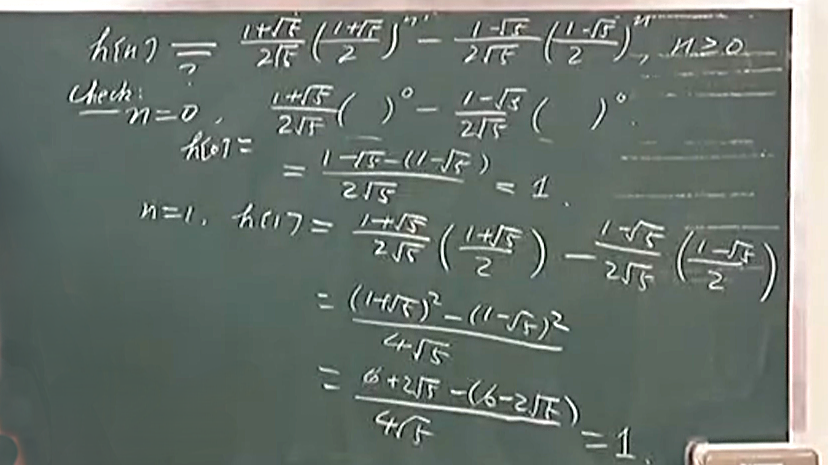 h[n] = (1+√5)/(2√5) ((1+√5)/2)^n − (1−√5)/(2√5) ((1−√5)/2)^n, n≥0
?
Check:
n=0, (1+√5)/(2√5) ( )^0 − (1−√5)/(2√5) ( )^0.
h[0] =
= (1+√5−(1−√5))/(2√5) = 1.
n=1, h[1] = (1+√5)/(2√5) ((1+√5)/2) − (1−√5)/(2√5) ((1−√5)/2)
= ((1+√5)^2 − (1−√5)^2)/(4√5)
= (6+2√5 − (6−2√5))/(4√5) = 1.